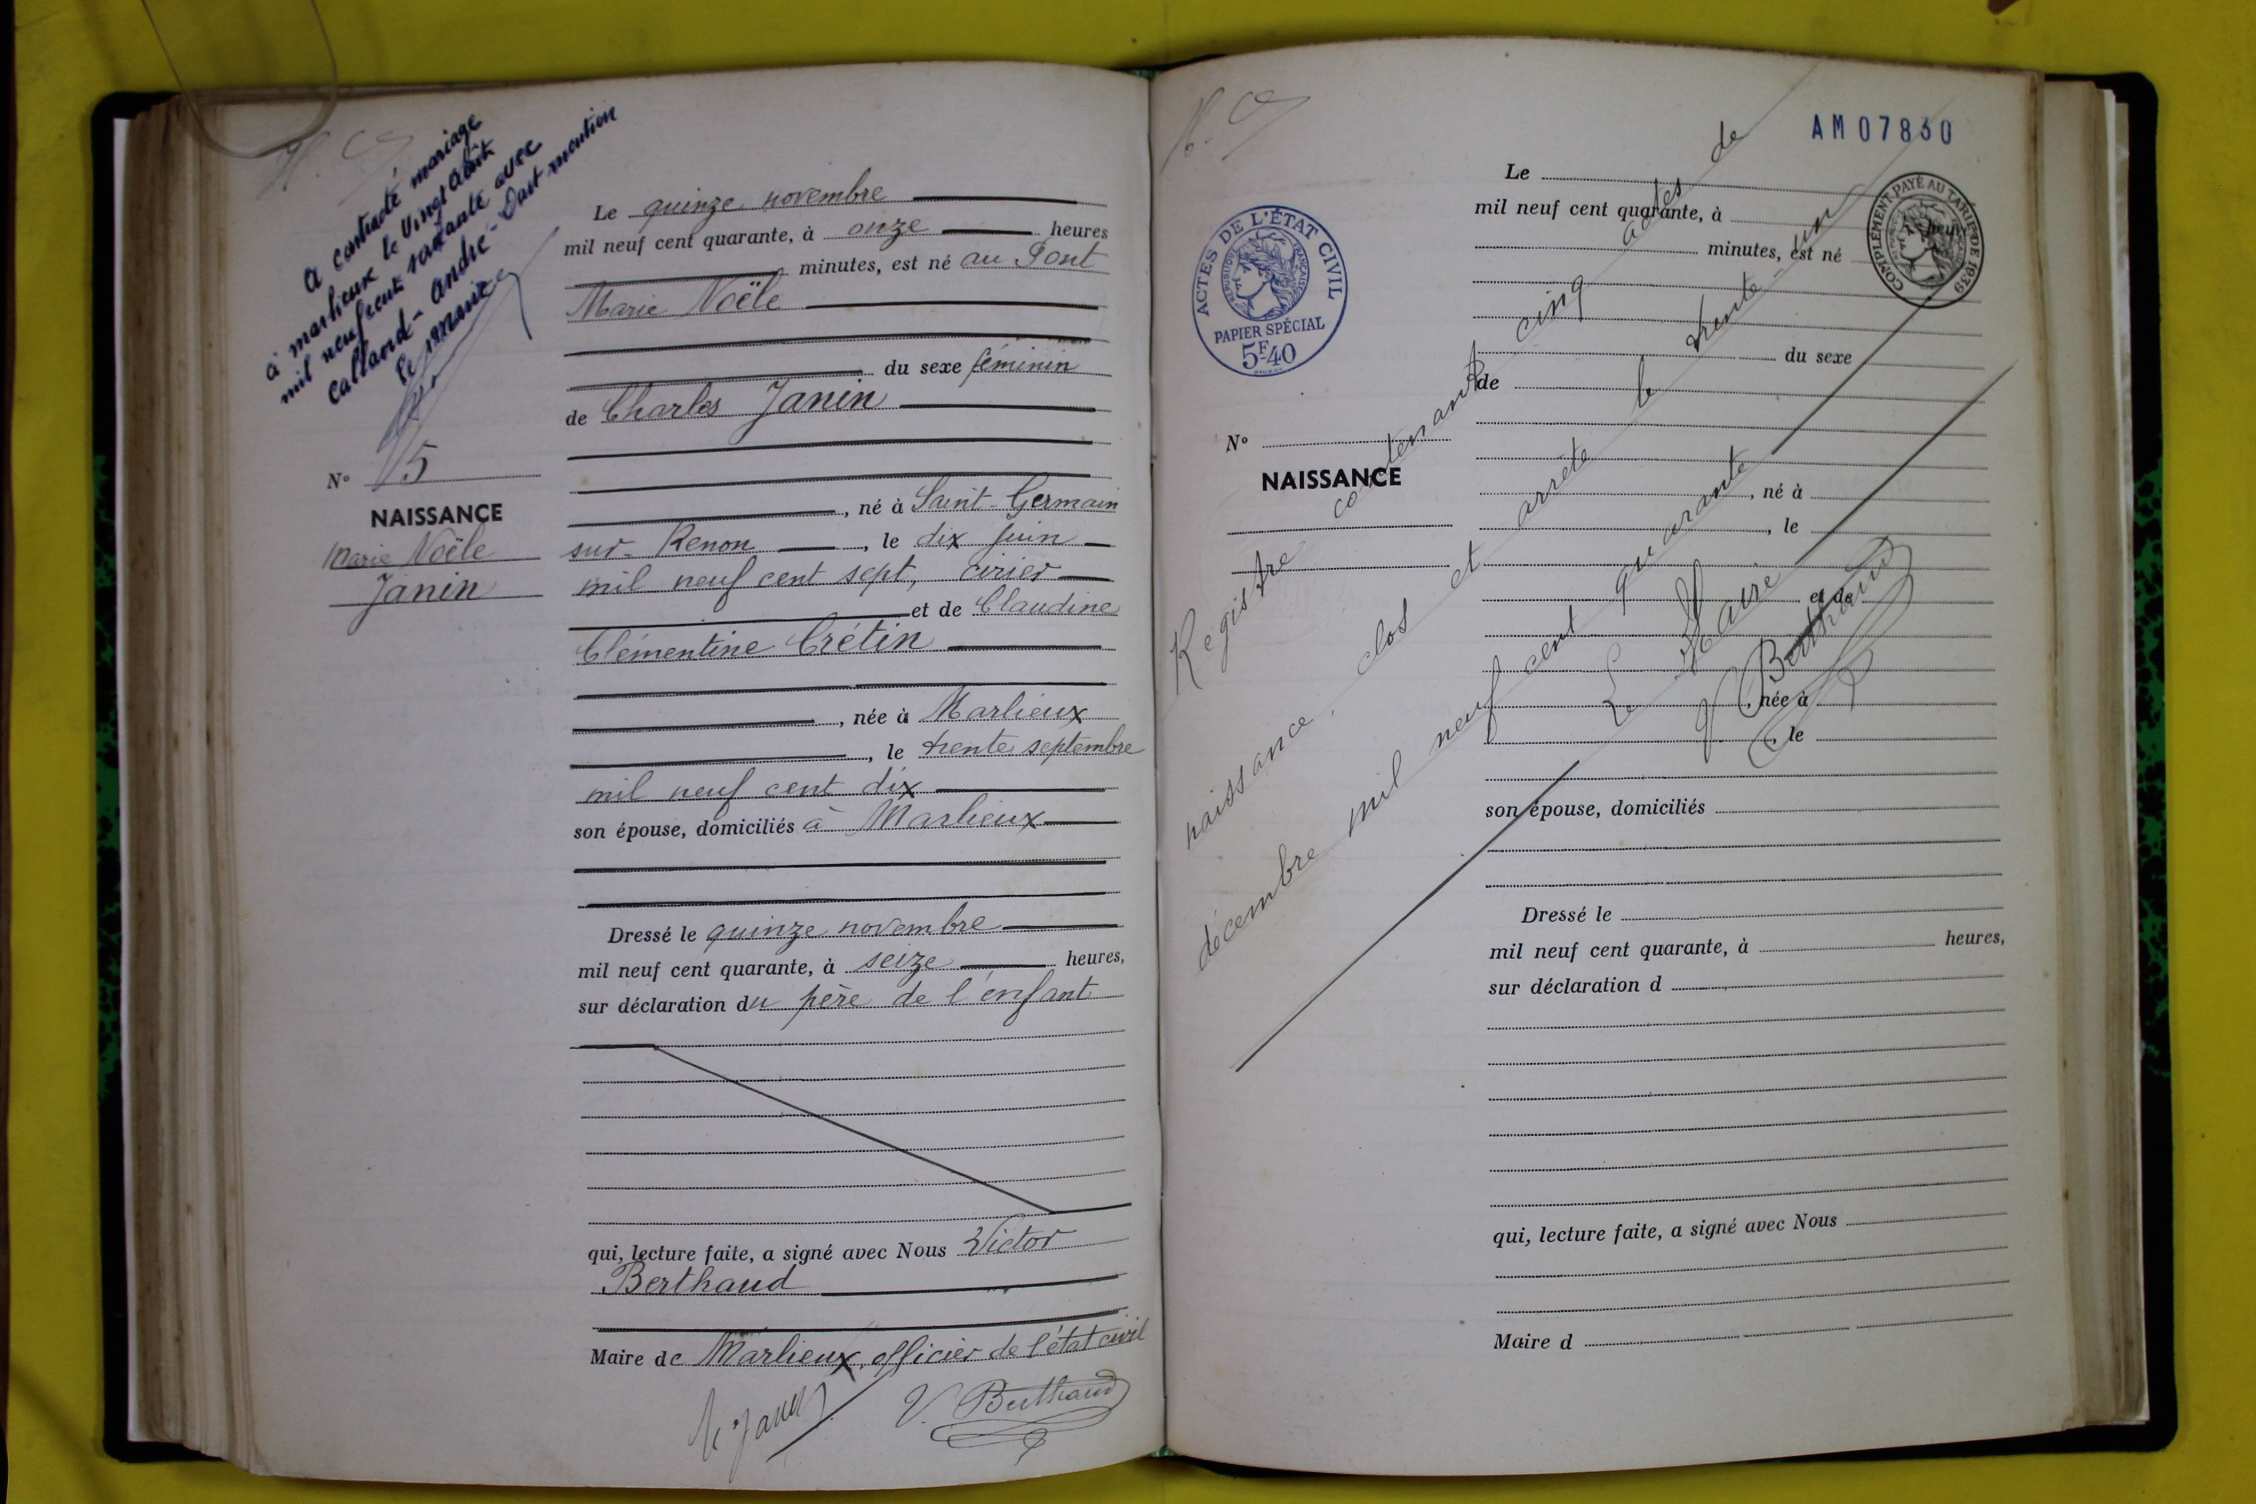 a contracté mariage
à marlieux le vingt août
mil neuf cent soixante avec
Callard - andré - Dont mention
le maire
N° 5
NAISSANCE
Marie Noële
Janin
Le quinze novembre
mil neuf cent quarante, à onze heures
minutes, est né au Pont
Marie Noële
du sexe féminin
de Charles Janin
, né à Saint-Germain
sur-Renon , le dix juin
mil neuf cent sept, cirier
et de Claudine
Clémentine Crétin
, née à Marlieux
, le trente septembre
mil neuf cent dix
son épouse, domiciliés à Marlieux
Dressé le quinze novembre
mil neuf cent quarante, à seize heures,
sur déclaration du père de l'enfant
qui, lecture faite, a signé avec Nous Victor
Berthaud
Maire de Marlieux, officier de l'état civil
Janin V. Berthaud
AM 07830
COMPLÉMENT PAYÉ AU TARIF DE 1939
ACTES DE L'ÉTAT CIVIL
RÉPUBLIQUE FRANÇAISE
PAPIER SPÉCIAL
5F40
N°
NAISSANCE
Le
mil neuf cent quarante, à heures
minutes, est né
du sexe
de
, né à
, le
et de
, née à
, le
son épouse, domiciliés
Dressé le
mil neuf cent quarante, à heures,
sur déclaration d
qui, lecture faite, a signé avec Nous
Maire d
Registre contenant cinq actes de
naissance, clos et arrêté le trente un
décembre mil neuf cent quarante
Le Maire
V Berthaud